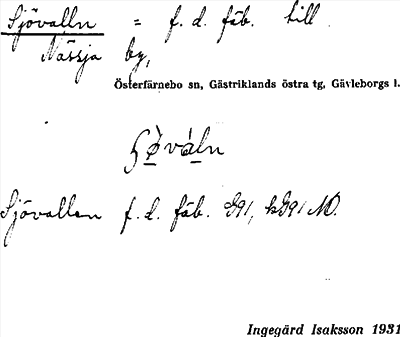 Sjövalln = f. d. fäb. till
Nässja by,
Österfärnebo sn, Gästriklands östra tg, Gävleborgs l.
Sjövallen f. d. fäb. G91, hG91 NO.
Ingegärd Isaksson 1931